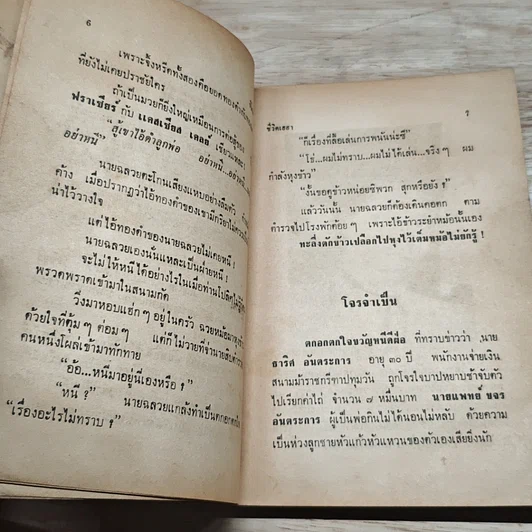 6
เพราะจิ้งหรีดทั้งสองคือยอดทองคำ
ที่ยังไม่เคยปราชัยใคร
ถ้าเป็นมวยก็ยิ่งใหญ่เหมือนการต่อสู้ของ
ฟราเซียร์ กับ แคสเซียส เคลย์ เชียวแหละ
“สู้เขาไอ้ดำลูกพ่อ อย่าหนี...อย่าหนี
อย่าหนี”
นายฉลวยตะโกนเสียงแหบอย่างลืมตัว
ค้าง เมื่อปรากฏว่าไอ้ทองดำของเขามีกิริยา
น่าไว้วางใจ
แต่ไอ้ทองดำของนายฉลวยไม่เคยหนี !
นายฉลวยเองนั่นแหละเป็นฝ่ายหนี !
จะไม่ให้หนีได้อย่างไรในเมื่อท่านโปลิศ
พรวดพราดเข้ามาในสนามกัด
วิ่งมาหอบแฮ่ก ๆ อยู่ในครัว ฉวยหม้อ
ด้วยใจที่ตุ้ม ๆ ต่อม ๆ แต่ก็ไม่วายที่จ่านายสิบตำรวจ
คนหนึ่งโผล่เข้ามาทักทาย
“อ้อ...หนีมาอยู่นี่เองหรือ ?”
“หนี ? นายฉลวยแกล้งทำเป็นตกอกตกใจ
“เรื่องอะไรไม่ทราบ ?
ชีวิตเฮฮา
7
“ก็เรื่องที่ลื้อเล่นการพนันน่ะซี”
“โอ๋—ผมไม่ทราบ...ผมไม่ได้เล่น...จริงๆ ผม
กำลังหุงข้าว”
“งั้นขอดูข้าวหน่อยซิพวก สุกหรือยัง ?
แล้ววันนั้น นายฉลวยก็ต้องเดินคอตก ตาม
ตำรวจไปโรงพักต้อย ๆ เพราะไอ้ข้าวระยำหม้อนั้นเอง
ทะลึ่งตักข้าวเปลือกไปหุงไว้เต็มหม้อไม่ยักรู้ !
โจรจำเป็น
ตกอกตกใจขวัญหนีดีฝ่อ ที่ทราบข่าวว่า นาย
ธาริศ อันตระการ อายุ ๓๐ ปี พนักงานจ่ายเงิน
สนามม้าราชกรีฑาปทุมวัน ถูกโจรใจบาปหยาบช้าจับตัว
ไปเรียกค่าไถ่ จำนวน ๗ หมื่นบาท นายแพทย์ ขจร
อันตระการ ผู้เป็นพ่อกินไม่ได้นอนไม่หลับ ด้วยความ
เป็นห่วงลูกชายหัวแก้วหัวแหวนของตัวเองเสียยิ่งนัก